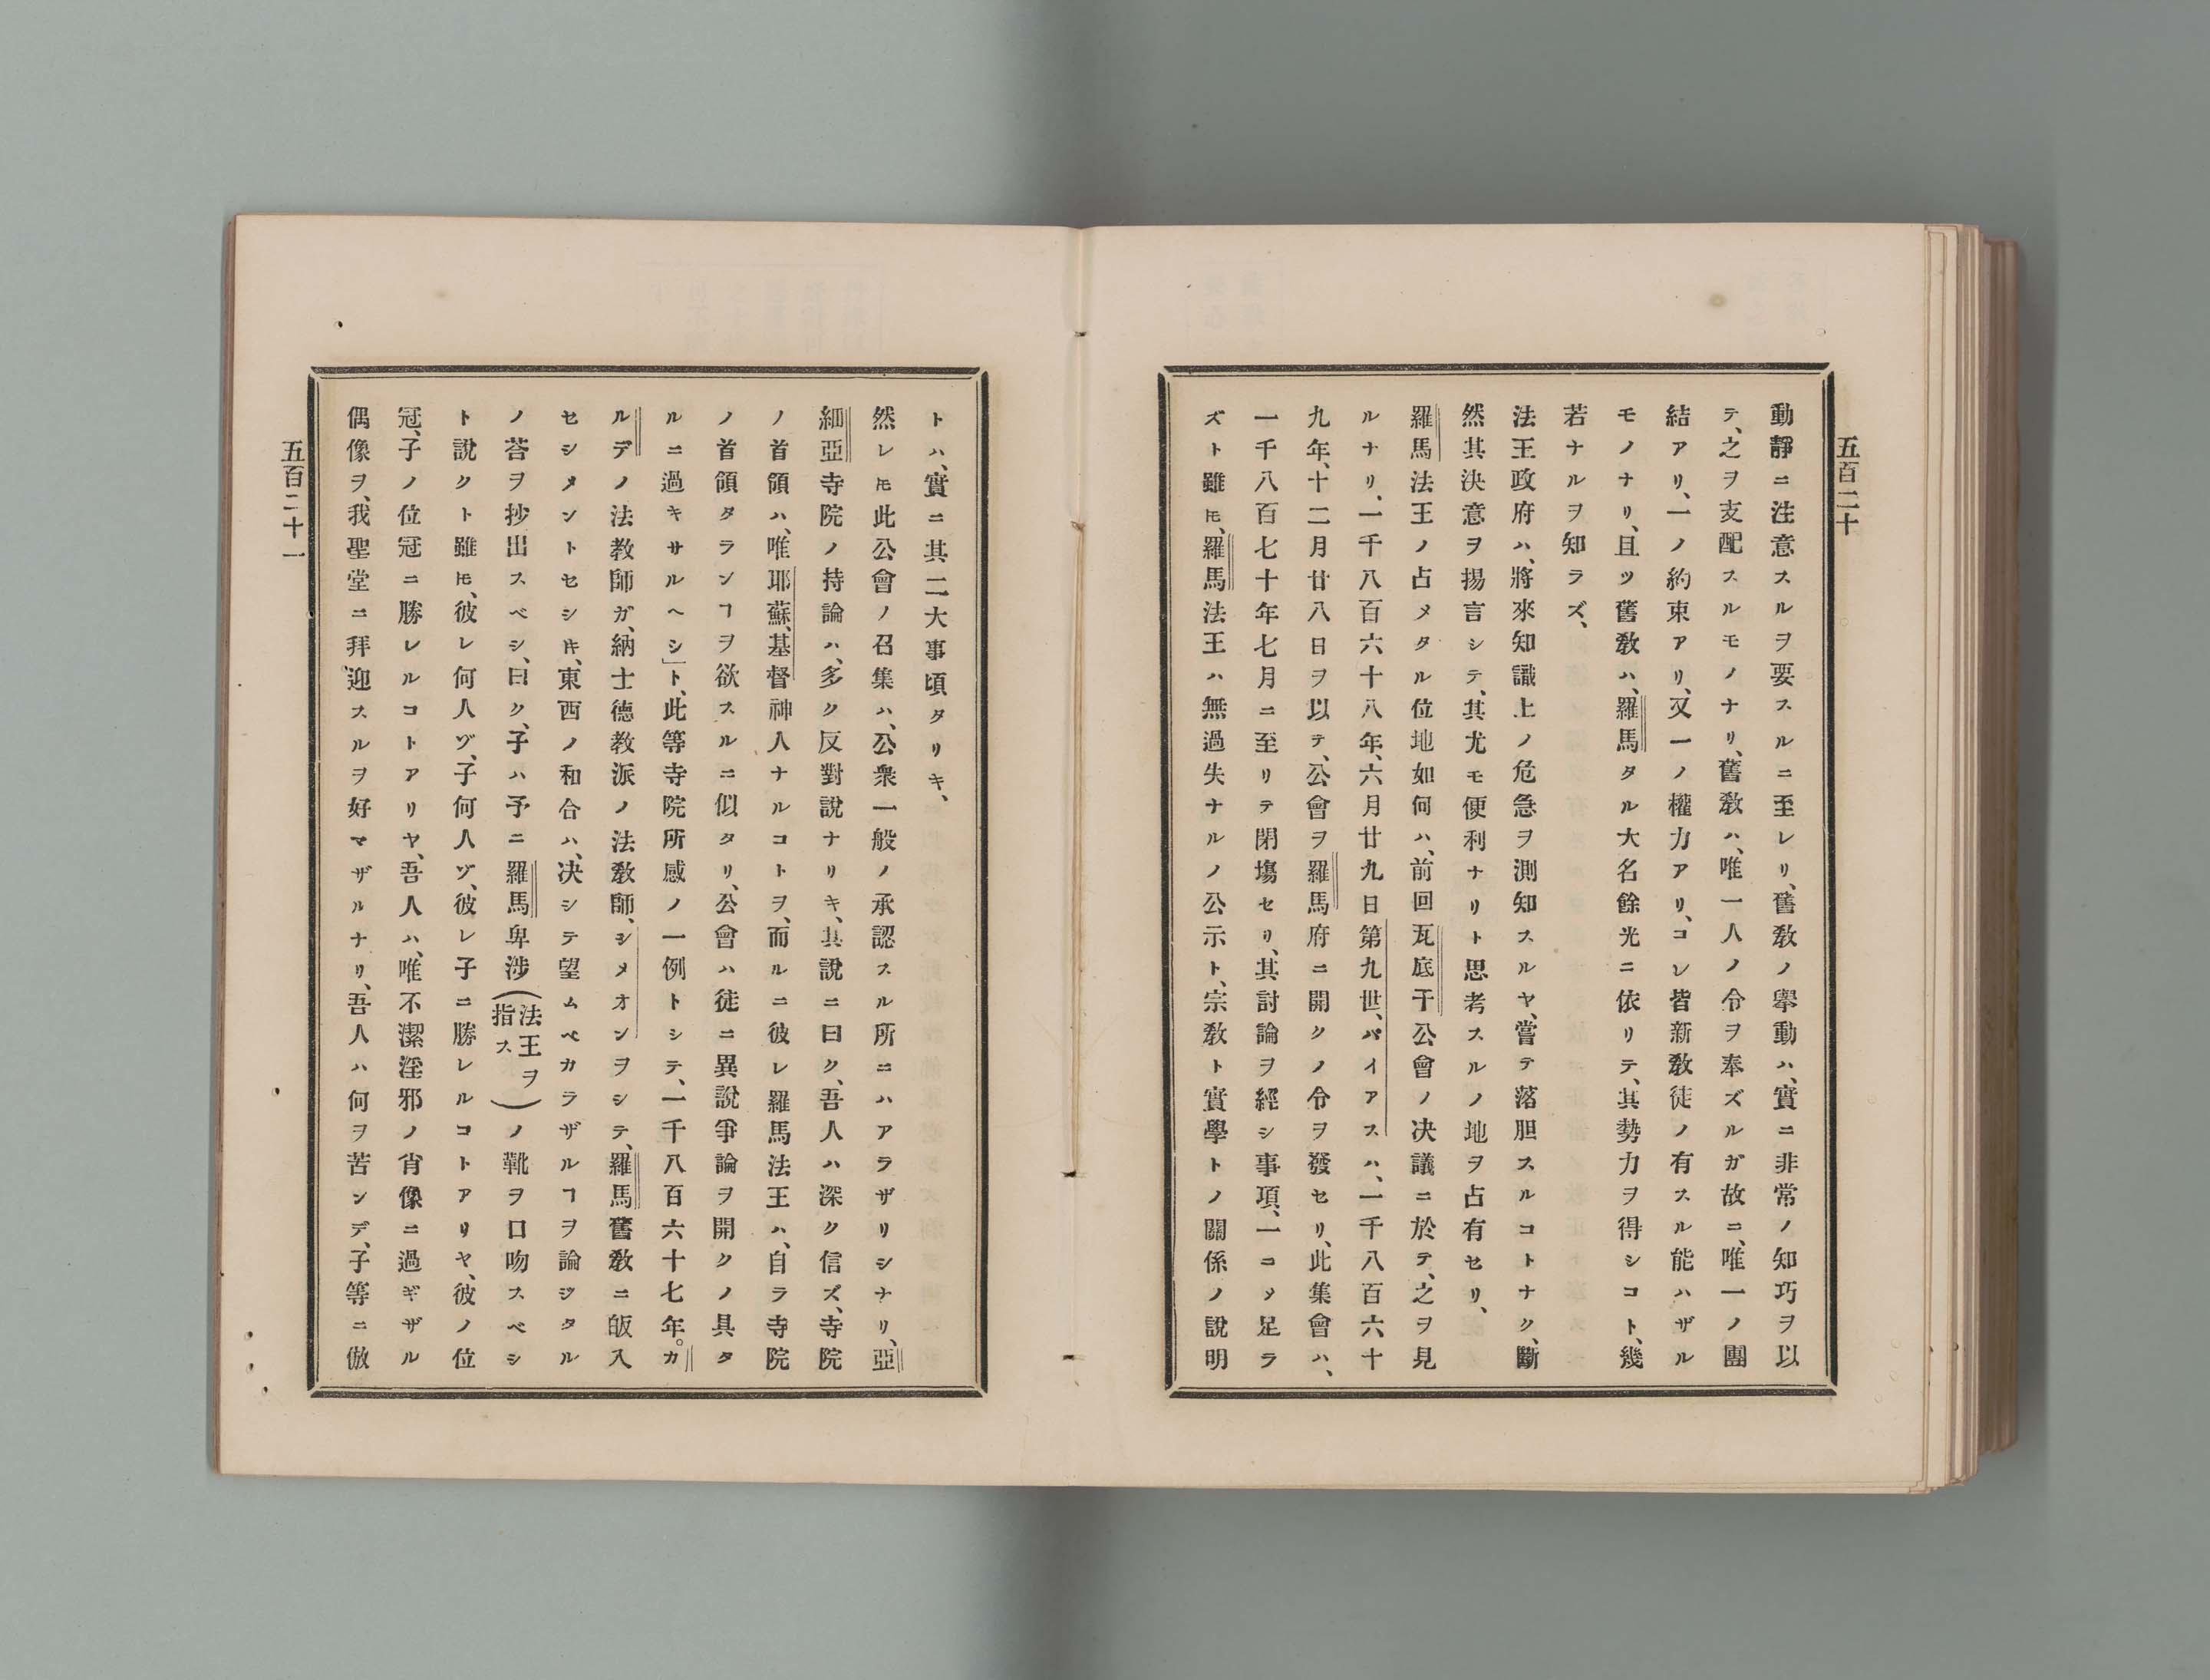 五百二十
動靜ニ注意スルヲ要スルニ至レリ、舊敎ノ擧動ハ、實ニ非常ノ知巧ヲ以
テ、之ヲ支配スルモノナリ、舊敎ハ、唯一人ノ令ヲ奉ズルガ故ニ、唯一ノ團
結アリ、一ノ約束アリ、又一ノ權力アリ、コレ皆新敎徒ノ有スル能ハザル
モノナリ、且ツ舊敎ハ、羅馬タル大名餘光ニ依リテ、其勢力ヲ得シコト、幾
若ナルヲ知ラズ、
法王政府ハ、將來知識上ノ危急ヲ測知スルヤ、嘗テ落胆スルコトナク、斷
然其決意ヲ揚言シテ、其尤モ便利ナリト思考スルノ地ヲ占有セリ、
羅馬法王ノ占メタル位地如何ハ、前回瓦底干公會ノ决議ニ於テ、之ヲ見
ルナリ、一千八百六十八年、六月廿九日第九世、パイアスハ、一千八百六十
九年、十二月廿八日ヲ以テ、公會ヲ羅馬府ニ開クノ令ヲ發セリ、此集會ハ、
一千八百七十年七月ニ至リテ閉塲セリ、其討論ヲ經シ事項、一コヽメ足ラ
ズト雖𪜈、羅馬法王ハ無過失ナルノ公示ト、宗敎ト實學トノ關係ノ說明
トハ、實ニ其二大事頃タリキ、
然レ𪜈此公會ノ召集ハ、公衆一般ノ承認スル所ニハアラザリシナリ、亞
細亞寺院ノ持論ハ、多ク反對說ナリキ、其說ニ曰ク、吾人ハ深ク信ズ、寺院
ノ首領ハ、唯耶蘇、基督神人ナルコトヲ、而ルニ彼レ羅馬法王ハ、自ラ寺院
ノ首領タランヿヲ欲スルニ似タリ、公會ハ徒ニ異說爭論ヲ開クノ具タ
ルニ過キサルヘシ」ト、此等寺院所感ノ一例トシテ、一千八百六十七年。カ
ルデノ法敎師ガ、納士德敎派ノ法敎師、シメオンヲシテ、羅馬舊敎ニ皈入
セシメントセシ𪜈、東西ノ和合ハ、决シテ望ムベカラザルヿヲ論ジタル
ノ荅ヲ抄出スベシ、曰ク、子ハ予ニ羅馬卑渉(法王ヲ指ス)ノ靴ヲ口吻スベシ
ト說クト雖𪜈、彼レ何人ゾ、子何人ゾ、彼レ子ニ勝レルコトアリヤ、彼ノ位
冠、子ノ位冠ニ勝レルコトアリヤ、吾人ハ、唯不潔淫邪ノ肖像ニ過ギザル
偶像ヲ、我聖堂ニ拜迎スルヲ好マザルナリ、吾人ハ何ヲ苦ンデ、子等ニ倣
五百二十一